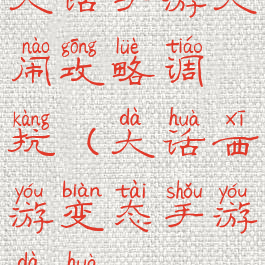 话手游
nào gōng lüè tiáo
闹攻略调
kàng dà huà xī
抗（大话西
yóu biàn tài shǒu yóu
游变态手游
dà huà